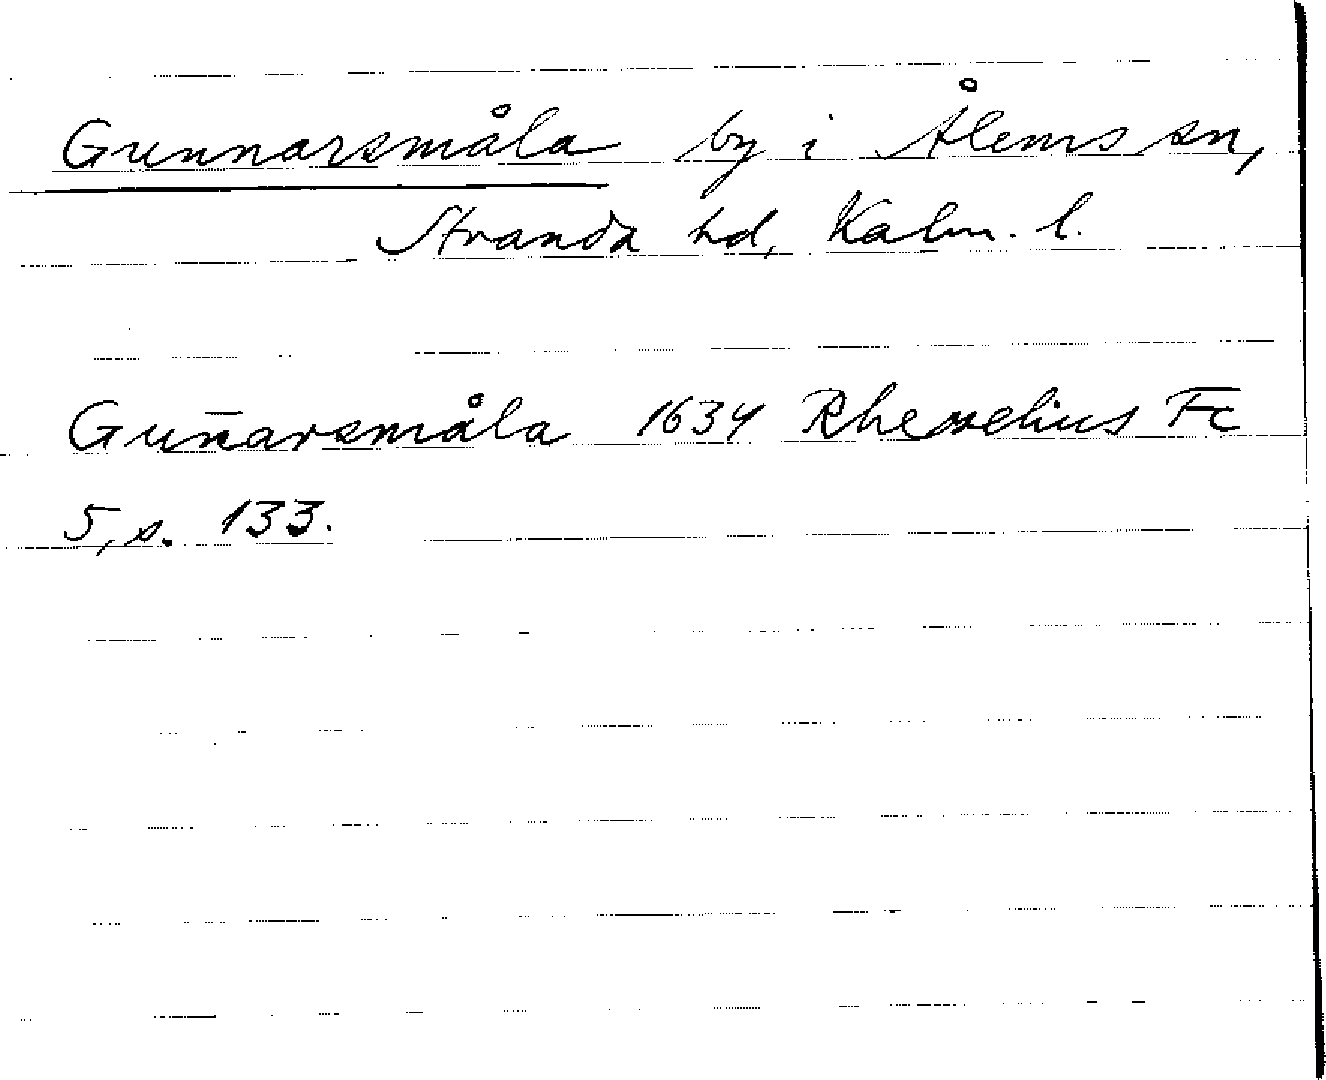 Gunnarsmåla by i Ålems sn,
Stranda hd, Kalm. l.
Gun̄arsmåla 1634 Rhezelius Fc
5, s. 133.